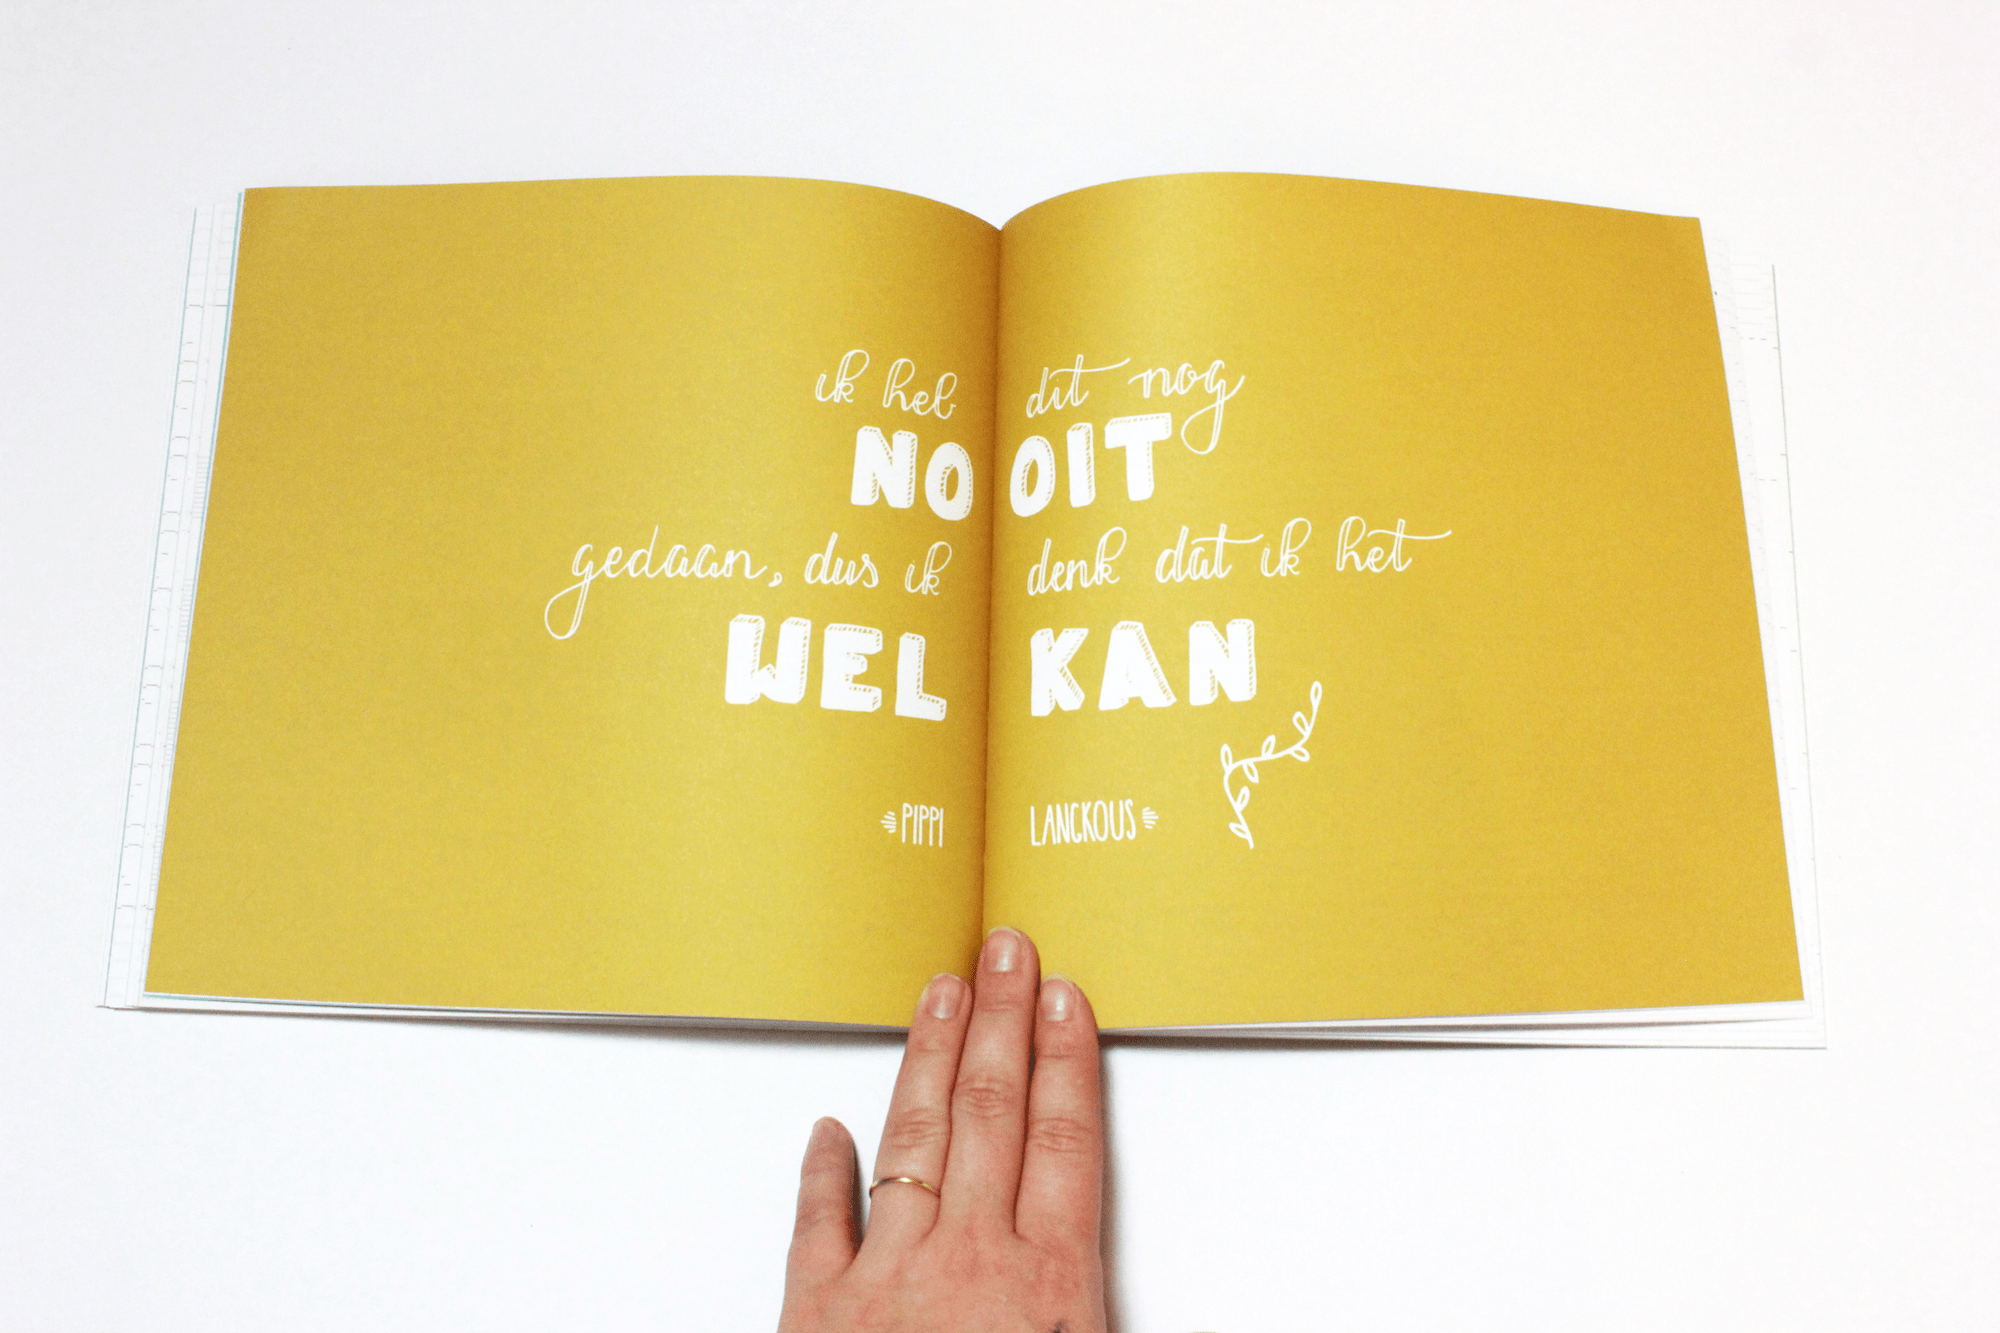 ik heb dit nog
NOOIT
gedaan, dus ik denk dat ik het
WEL KAN
PIPPI LANGKOUS